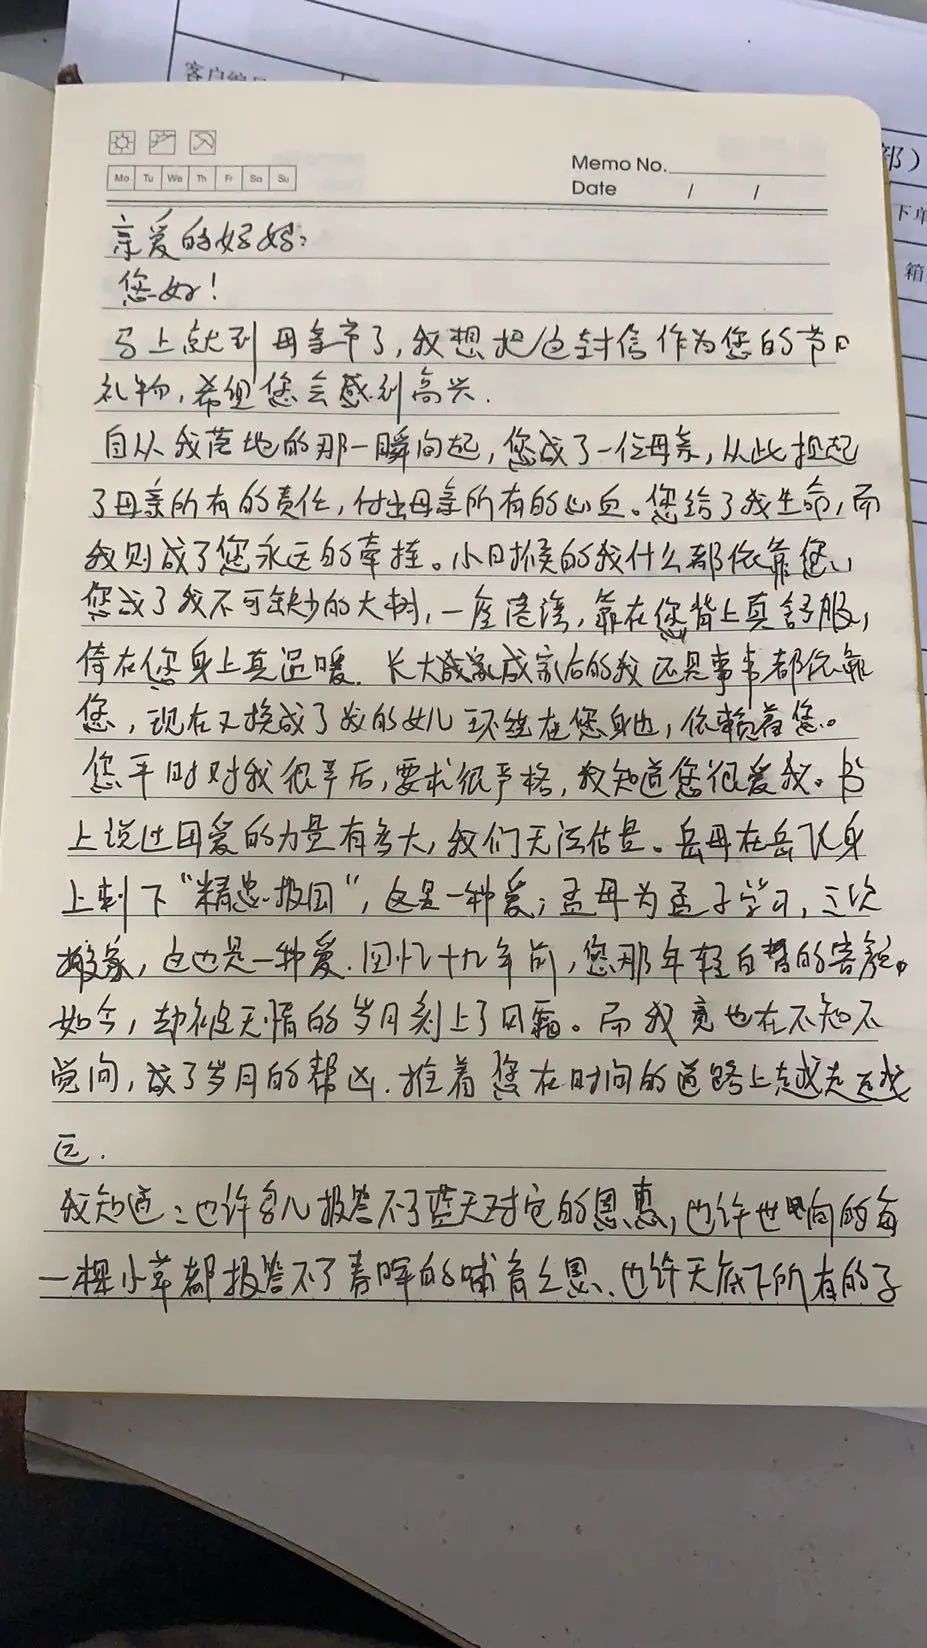 客户编号
部）
下单
箱
Memo No.
Mo Tu We Th Fr Sa Su
Date / /
亲爱的妈妈：
您好！
马上就到母亲节了，我想把这封信作为您的节日
礼物，希望您会感到高兴．
自从我落地的那一瞬间起，您成了一位母亲，从此担起
了母亲所有的责任，付出母亲所有的心血。您给了我生命，而
我则成了您永远的牵挂。小时候的我什么都依靠您，
您成了我不可缺少的大树，一座港湾，靠在您背上真舒服，
倚在您身上真温暖．长大成家后的我还是事事都依靠
您，现在又换成了我的女儿环绕在您身边，依赖着您。
您平时对我很严厉，要求很严格，我知道您很爱我。书
上说过母爱的力量有多大，我们无法估量。岳母在岳飞身
上刺下“精忠报国”，这是一种爱；孟母为孟子学习，三次
搬家，这也是一种爱．回忆十九年前，您那年轻白皙的容颜，
如今，却被无情的岁月刻上了风霜。而我竟也在不知不
觉间，成了岁月的帮凶．推着您在时间的道路上越走越
远．
我知道：也许鸟儿报答不了蓝天对它的恩惠，也许世间的每
一棵小草都报答不了春晖的哺育之恩、也许天底下所有的子